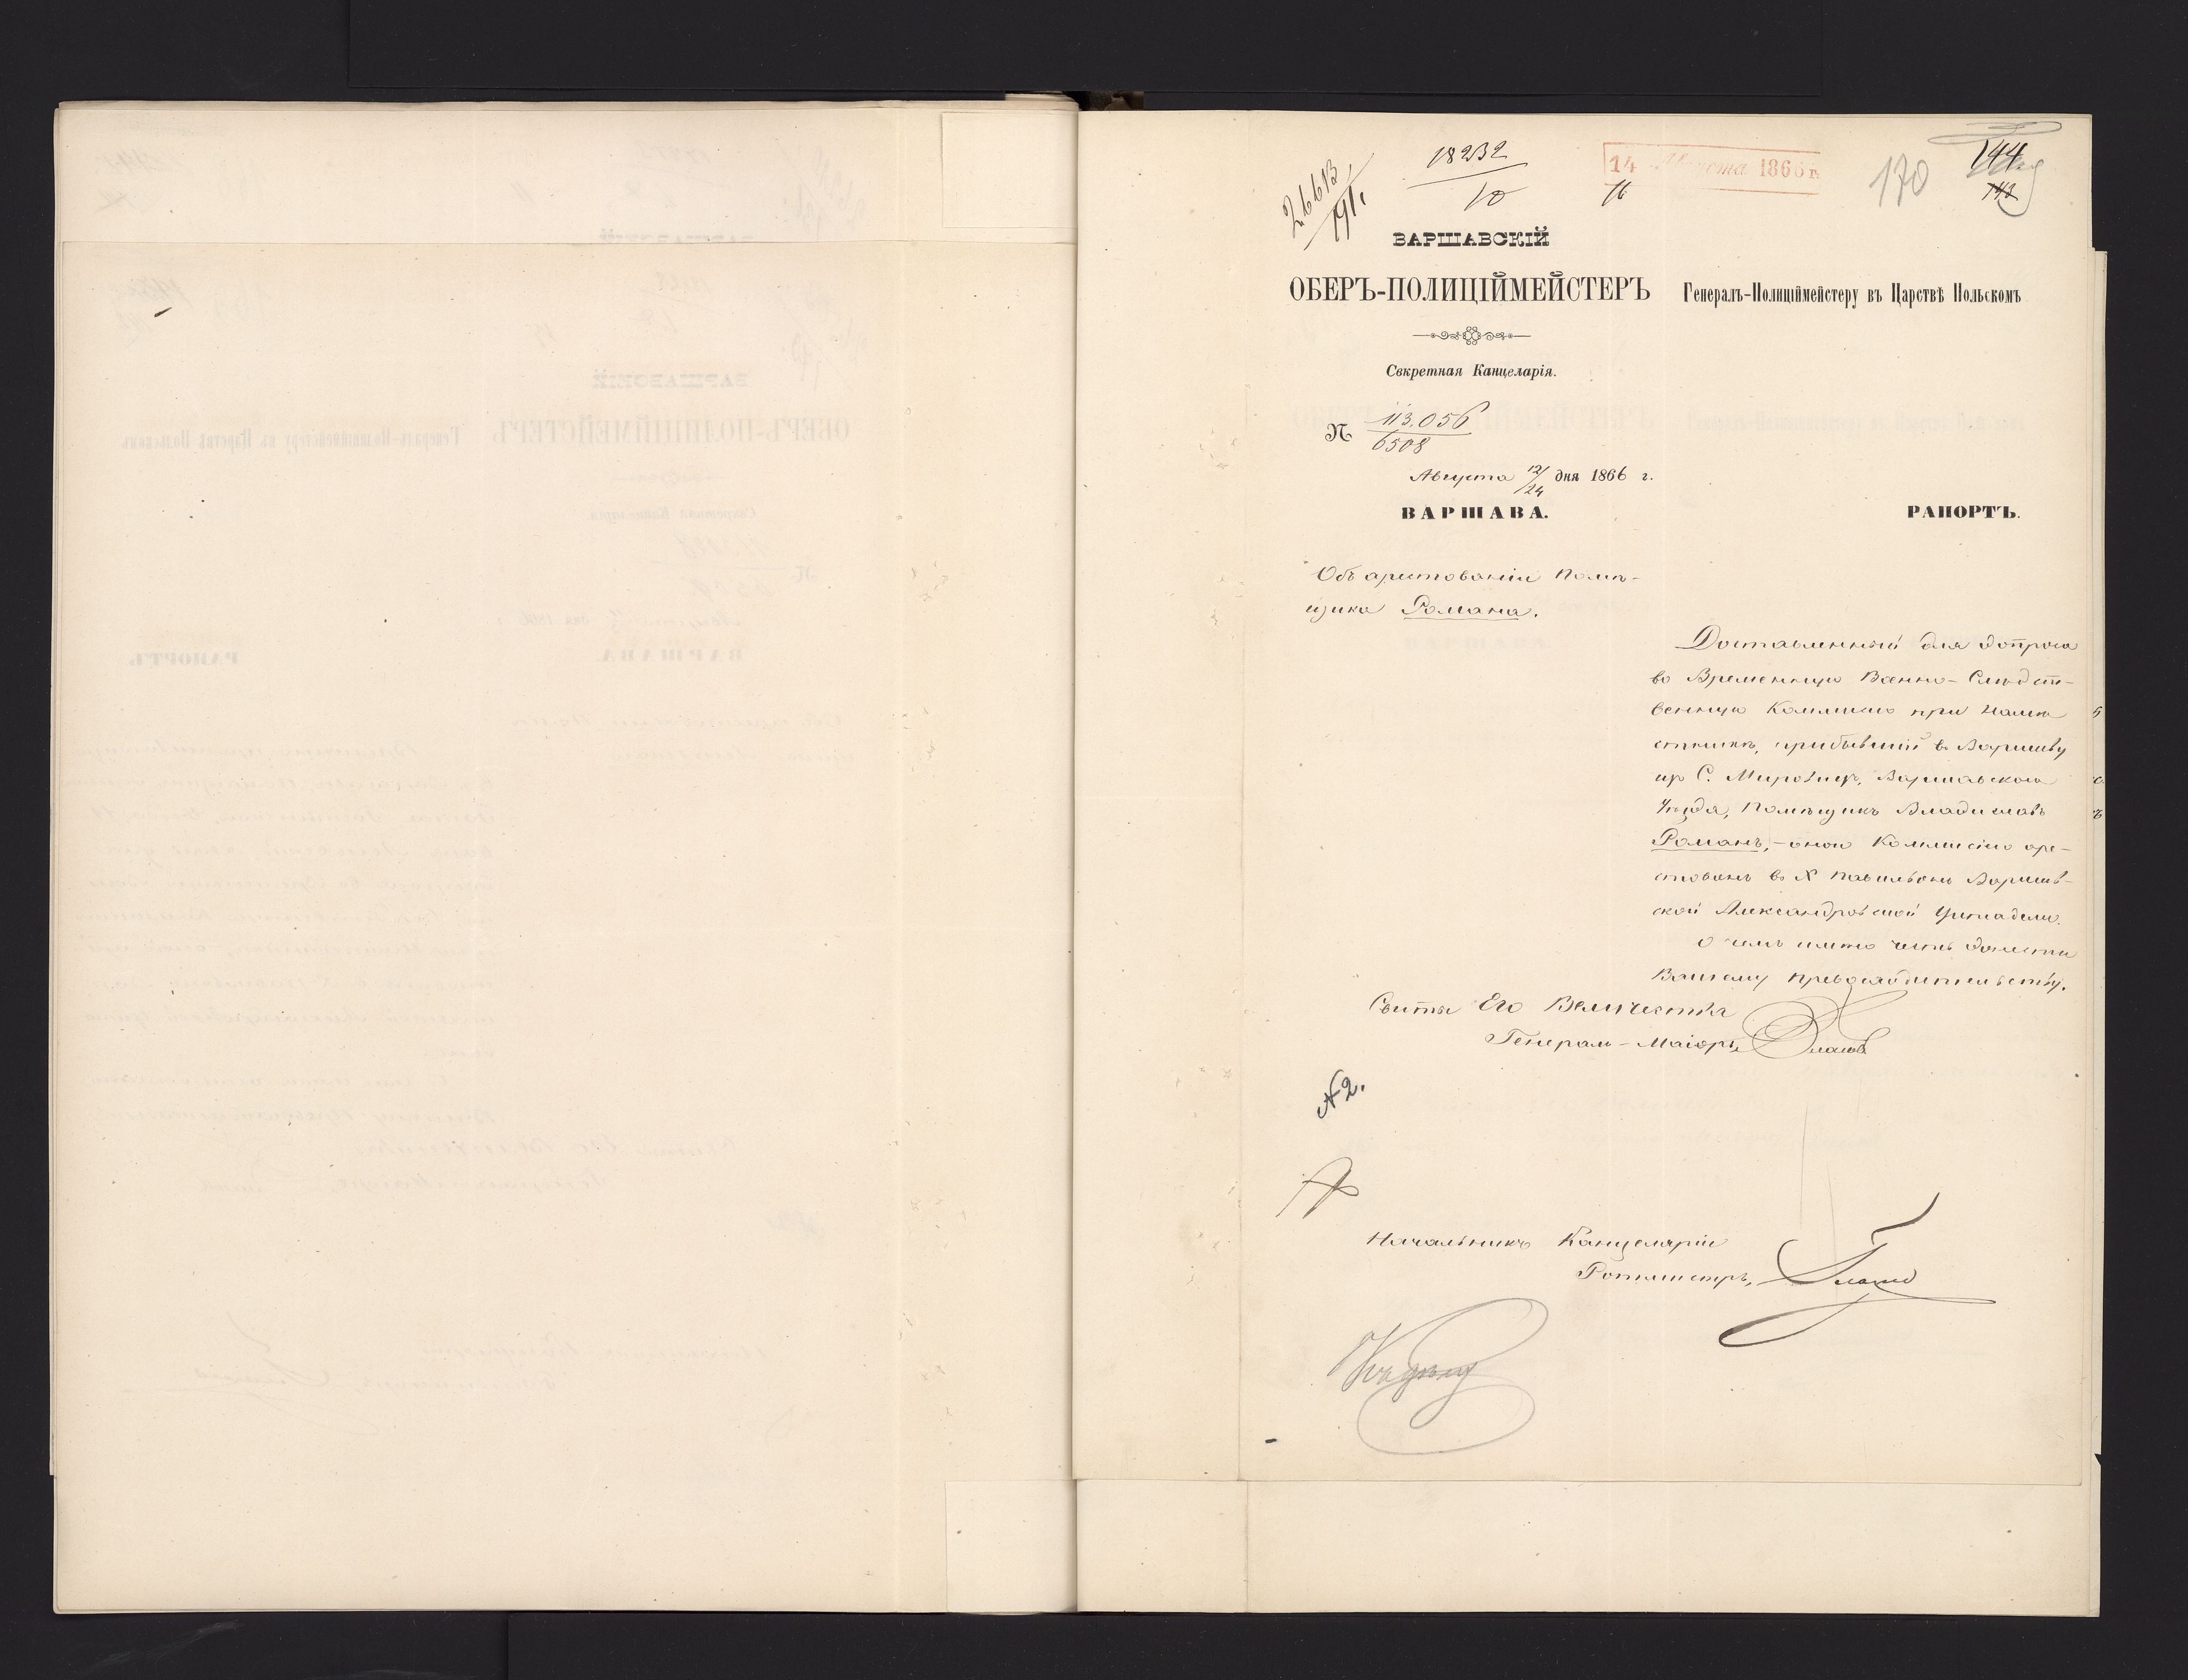 26613
191.
18232
10
14 Августа 1866 г.
16
170
144
143
ВАРШАВСКІЙ
ОБЕРЪ-ПОЛИЦІЙМЕЙСТЕРЪ
Генералъ-Полиціймейстеру въ Царствѣ Польскомъ
Секретная Канцеларія.
№ 113.056
6508
Августа 12/24 дня 1866 г.
ВАРШАВА.
РАПОРТЪ.
Объ арестованіи Помѣ-
щика Романа.
Доставленный для допроса
во Временную Военно-Слѣдст-
венную Коммисію при Намѣ
стникѣ, прибывшій въ Варшаву
изъ С. Мировицъ, Варшавскаго
Уѣзда, Помѣщикъ Владиславъ
Романъ, – оною Коммисіею аре-
стованъ въ X павильонъ Варшав-
ской Александровской Цитадели.
О чемъ имѣю честь донести
Вашему Превосходительству.
Свиты Его Величества
Генералъ-Маіоръ, Власовъ
№ 2.
Начальникъ Канцеляріи
Ротмистръ,
Къ дѣлу